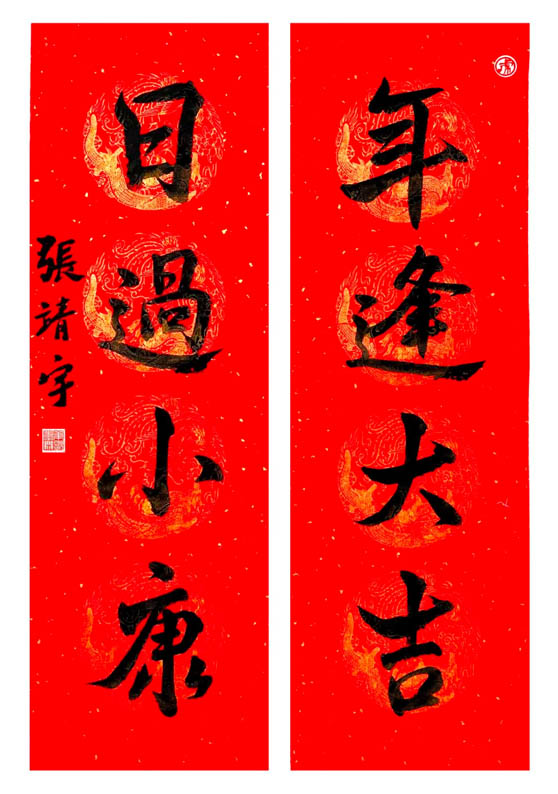 年逢大吉
日過小康
張靖宇